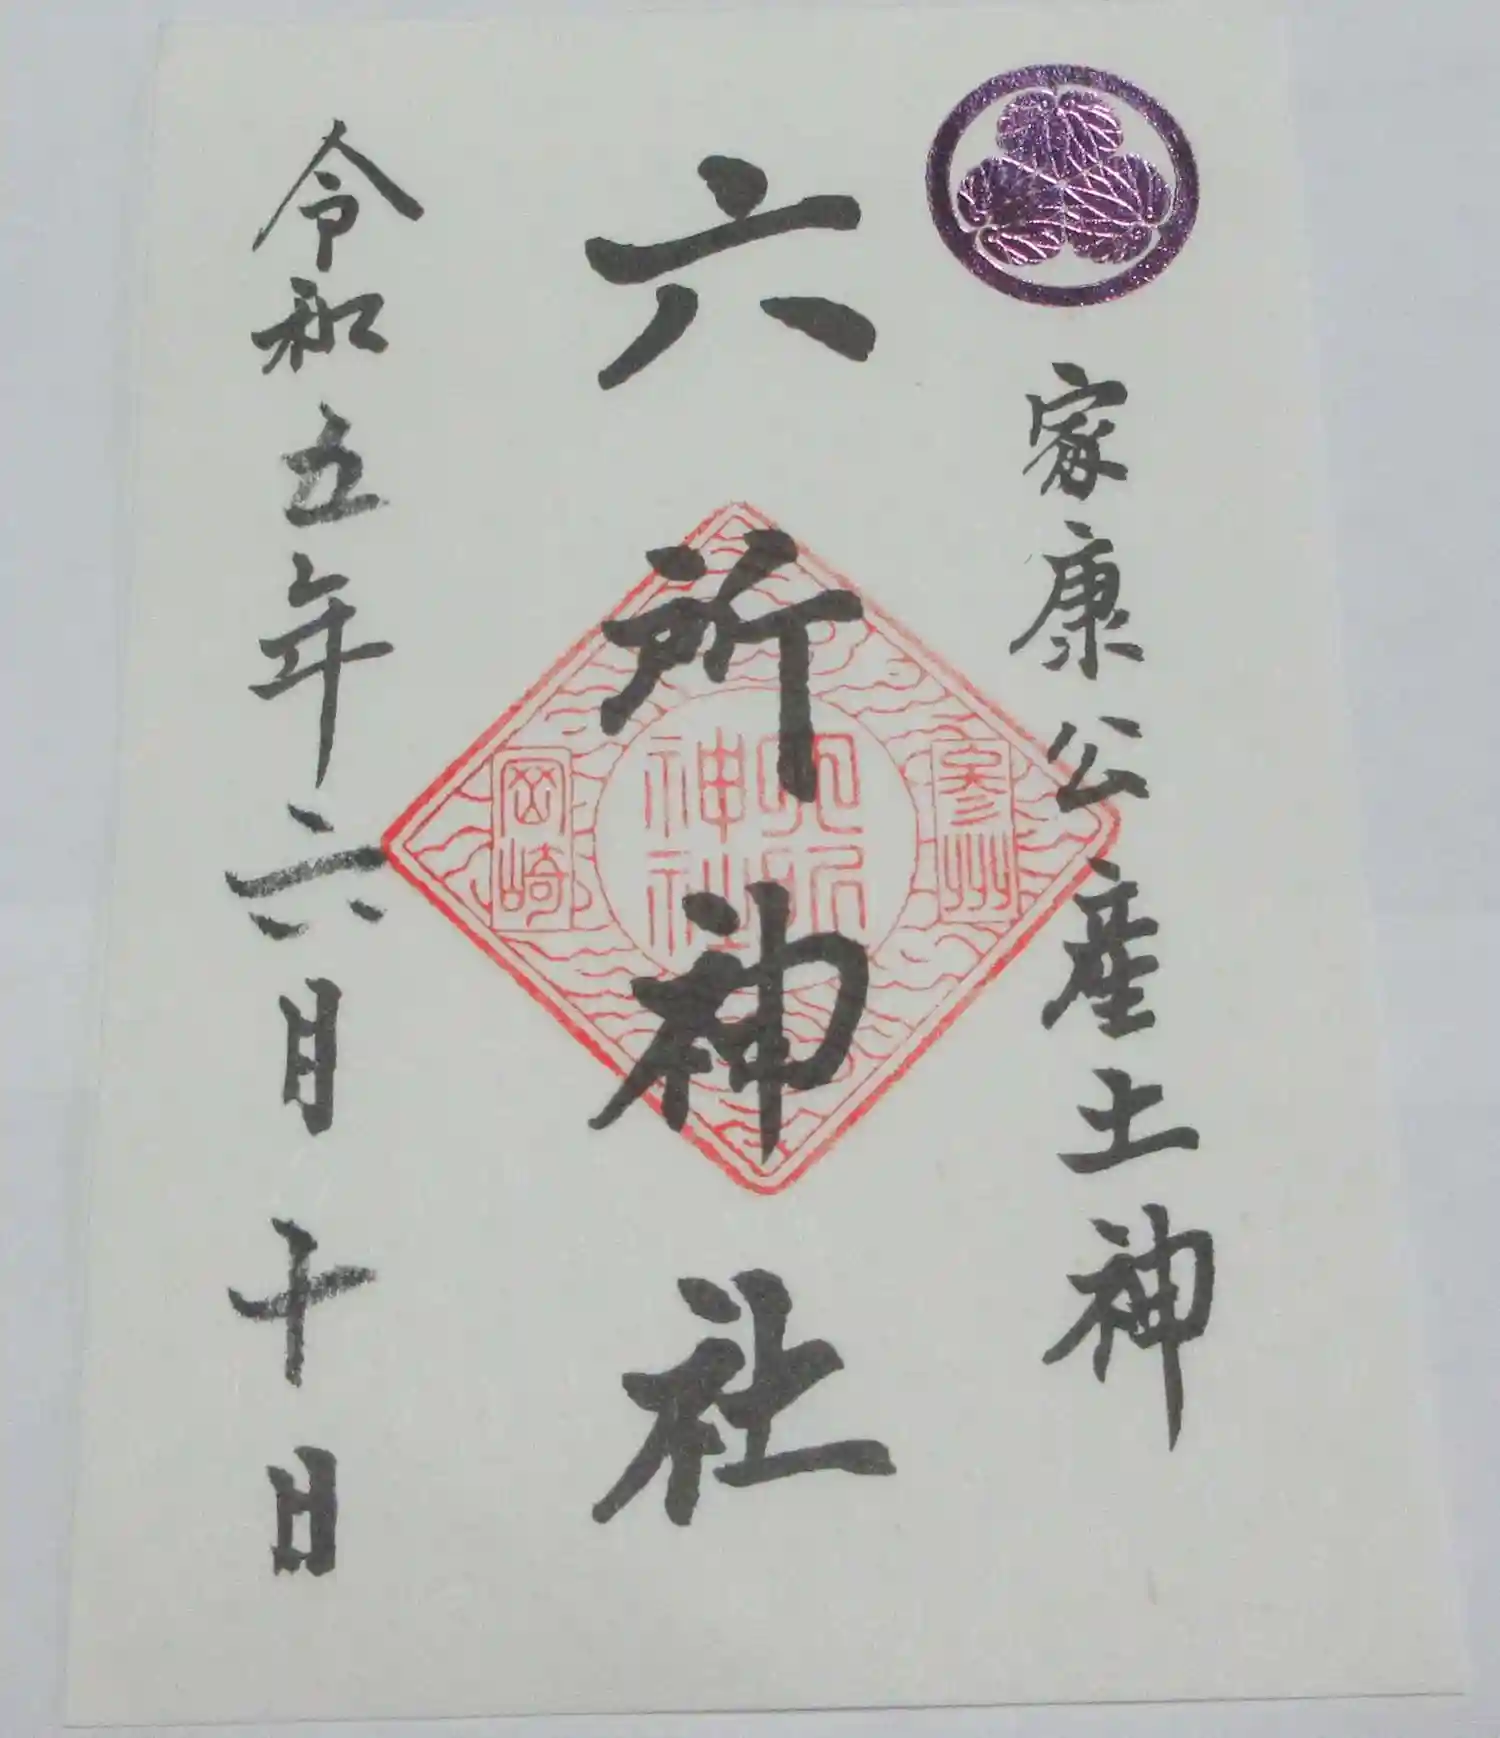 家康公産土神
六所神社
令和五年六月十日
参州
六所
神社
岡崎